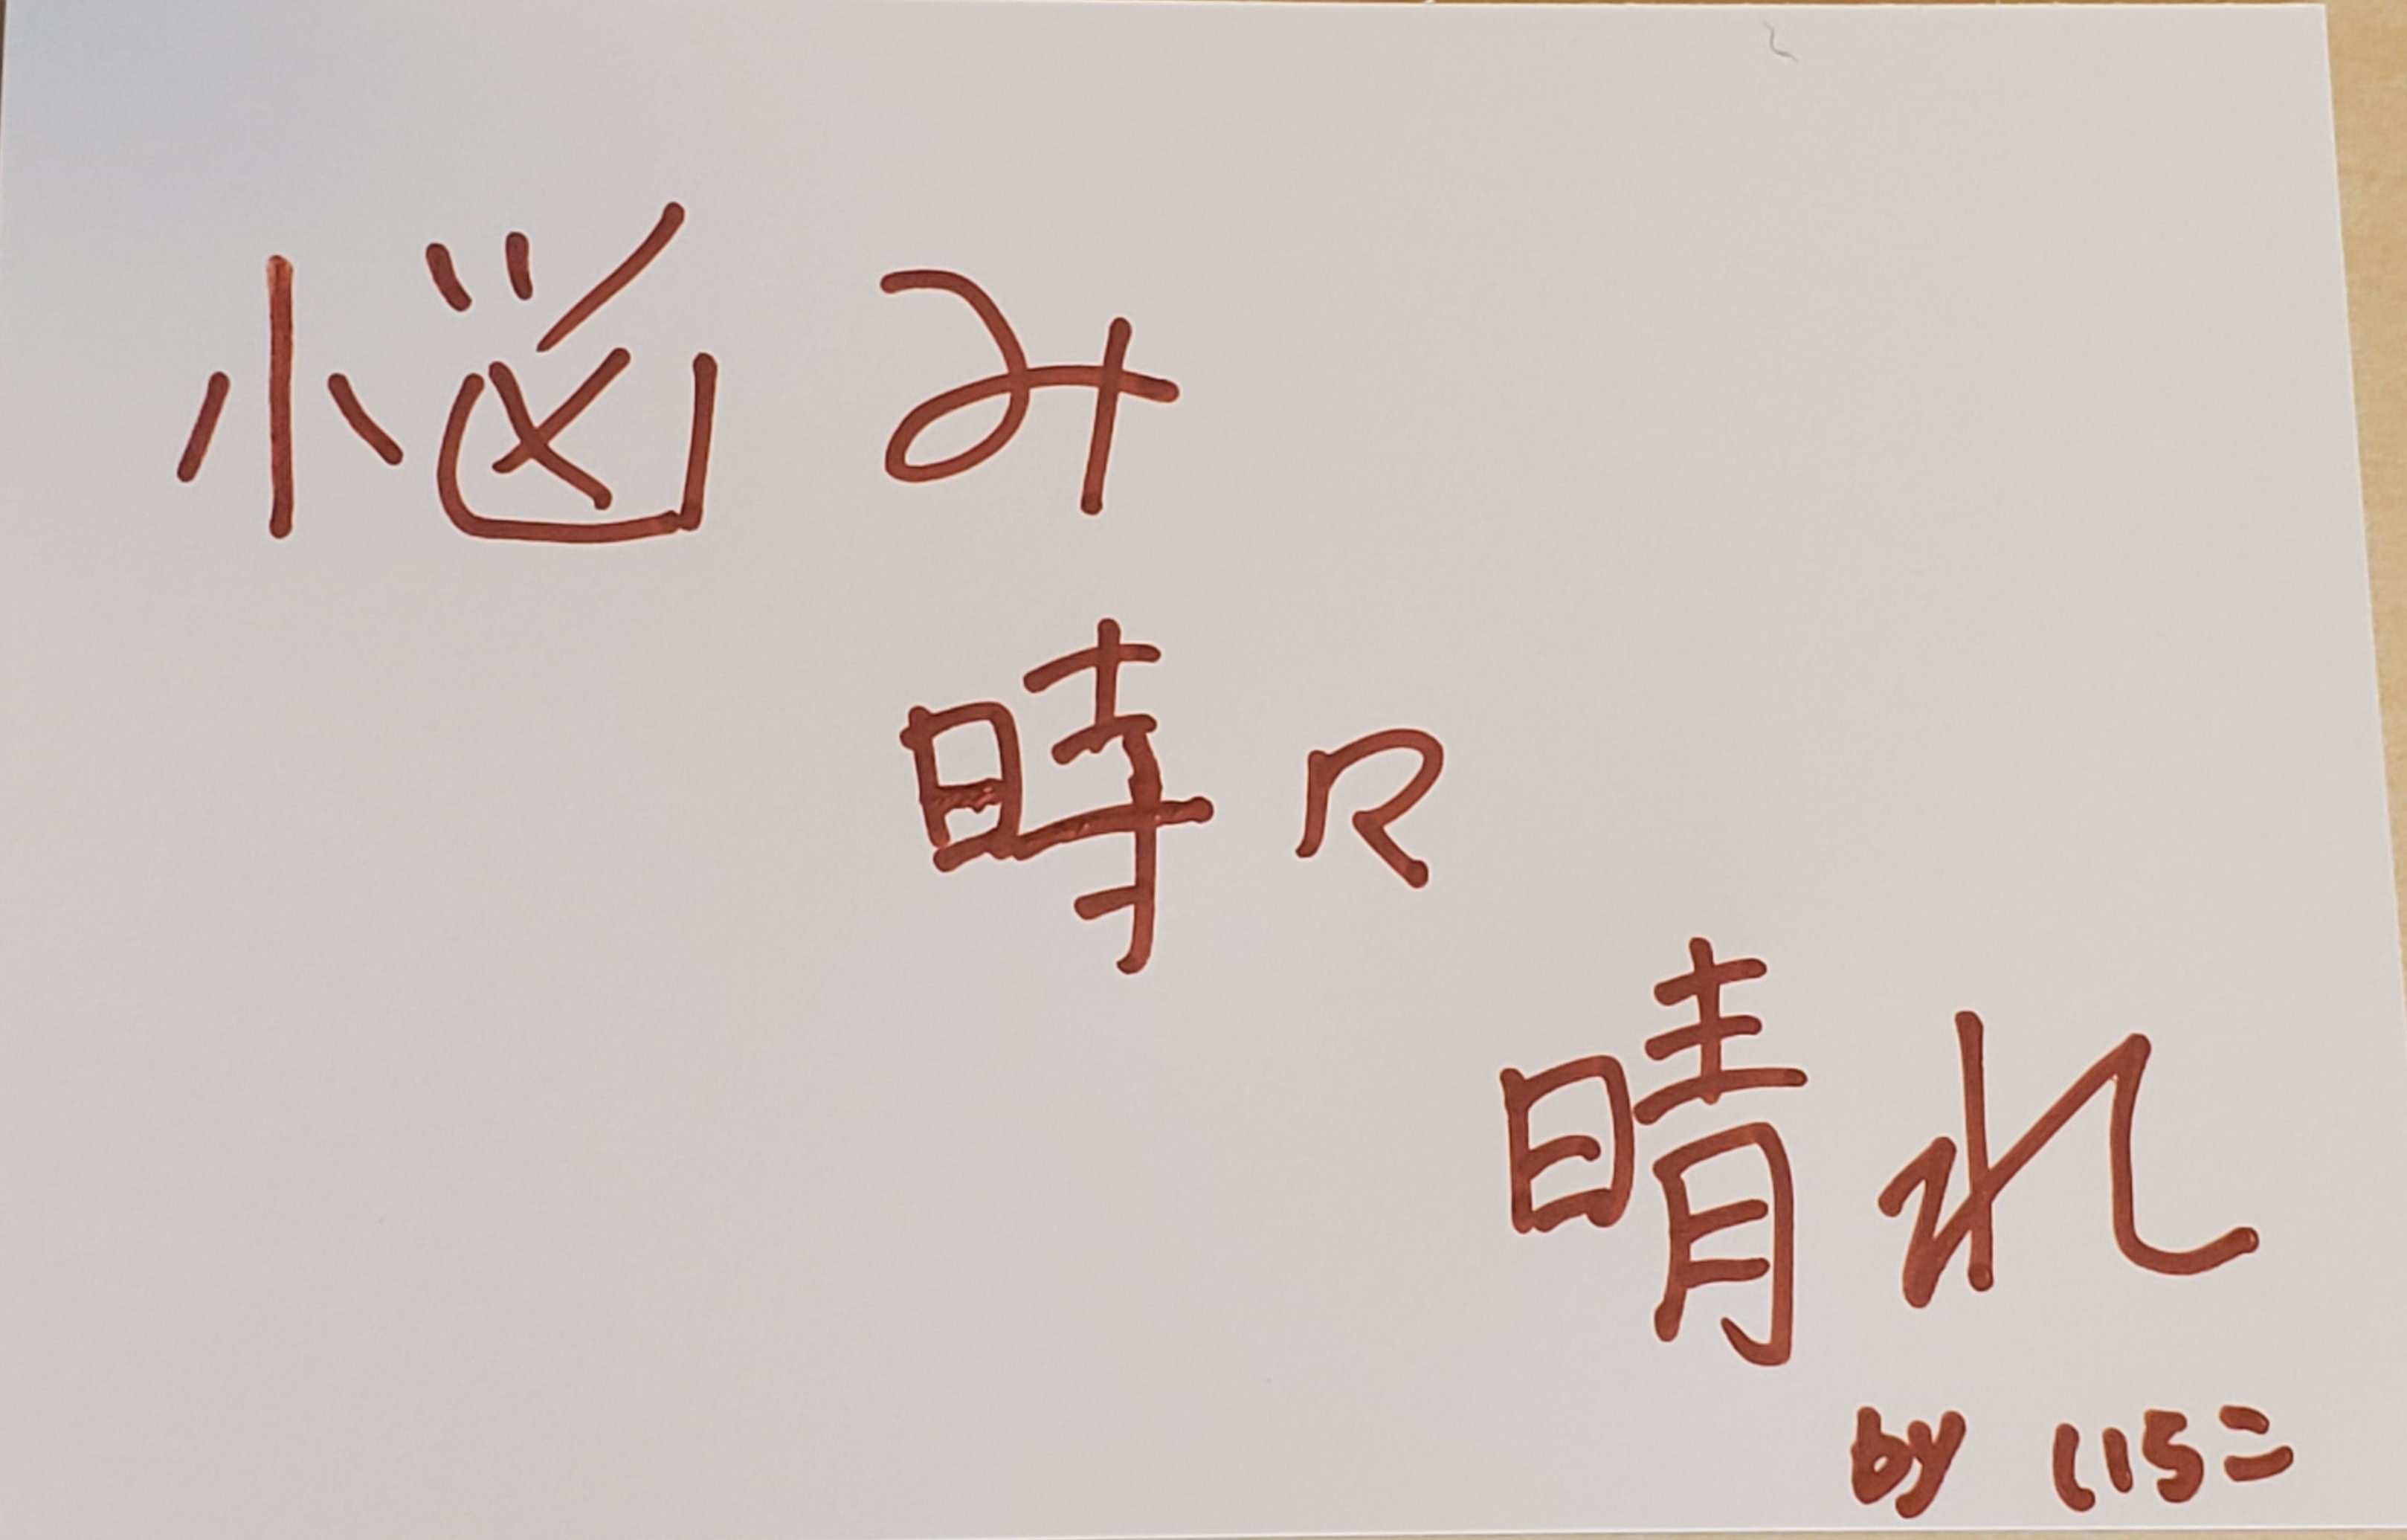 悩み
時々
晴れ
by いちこ